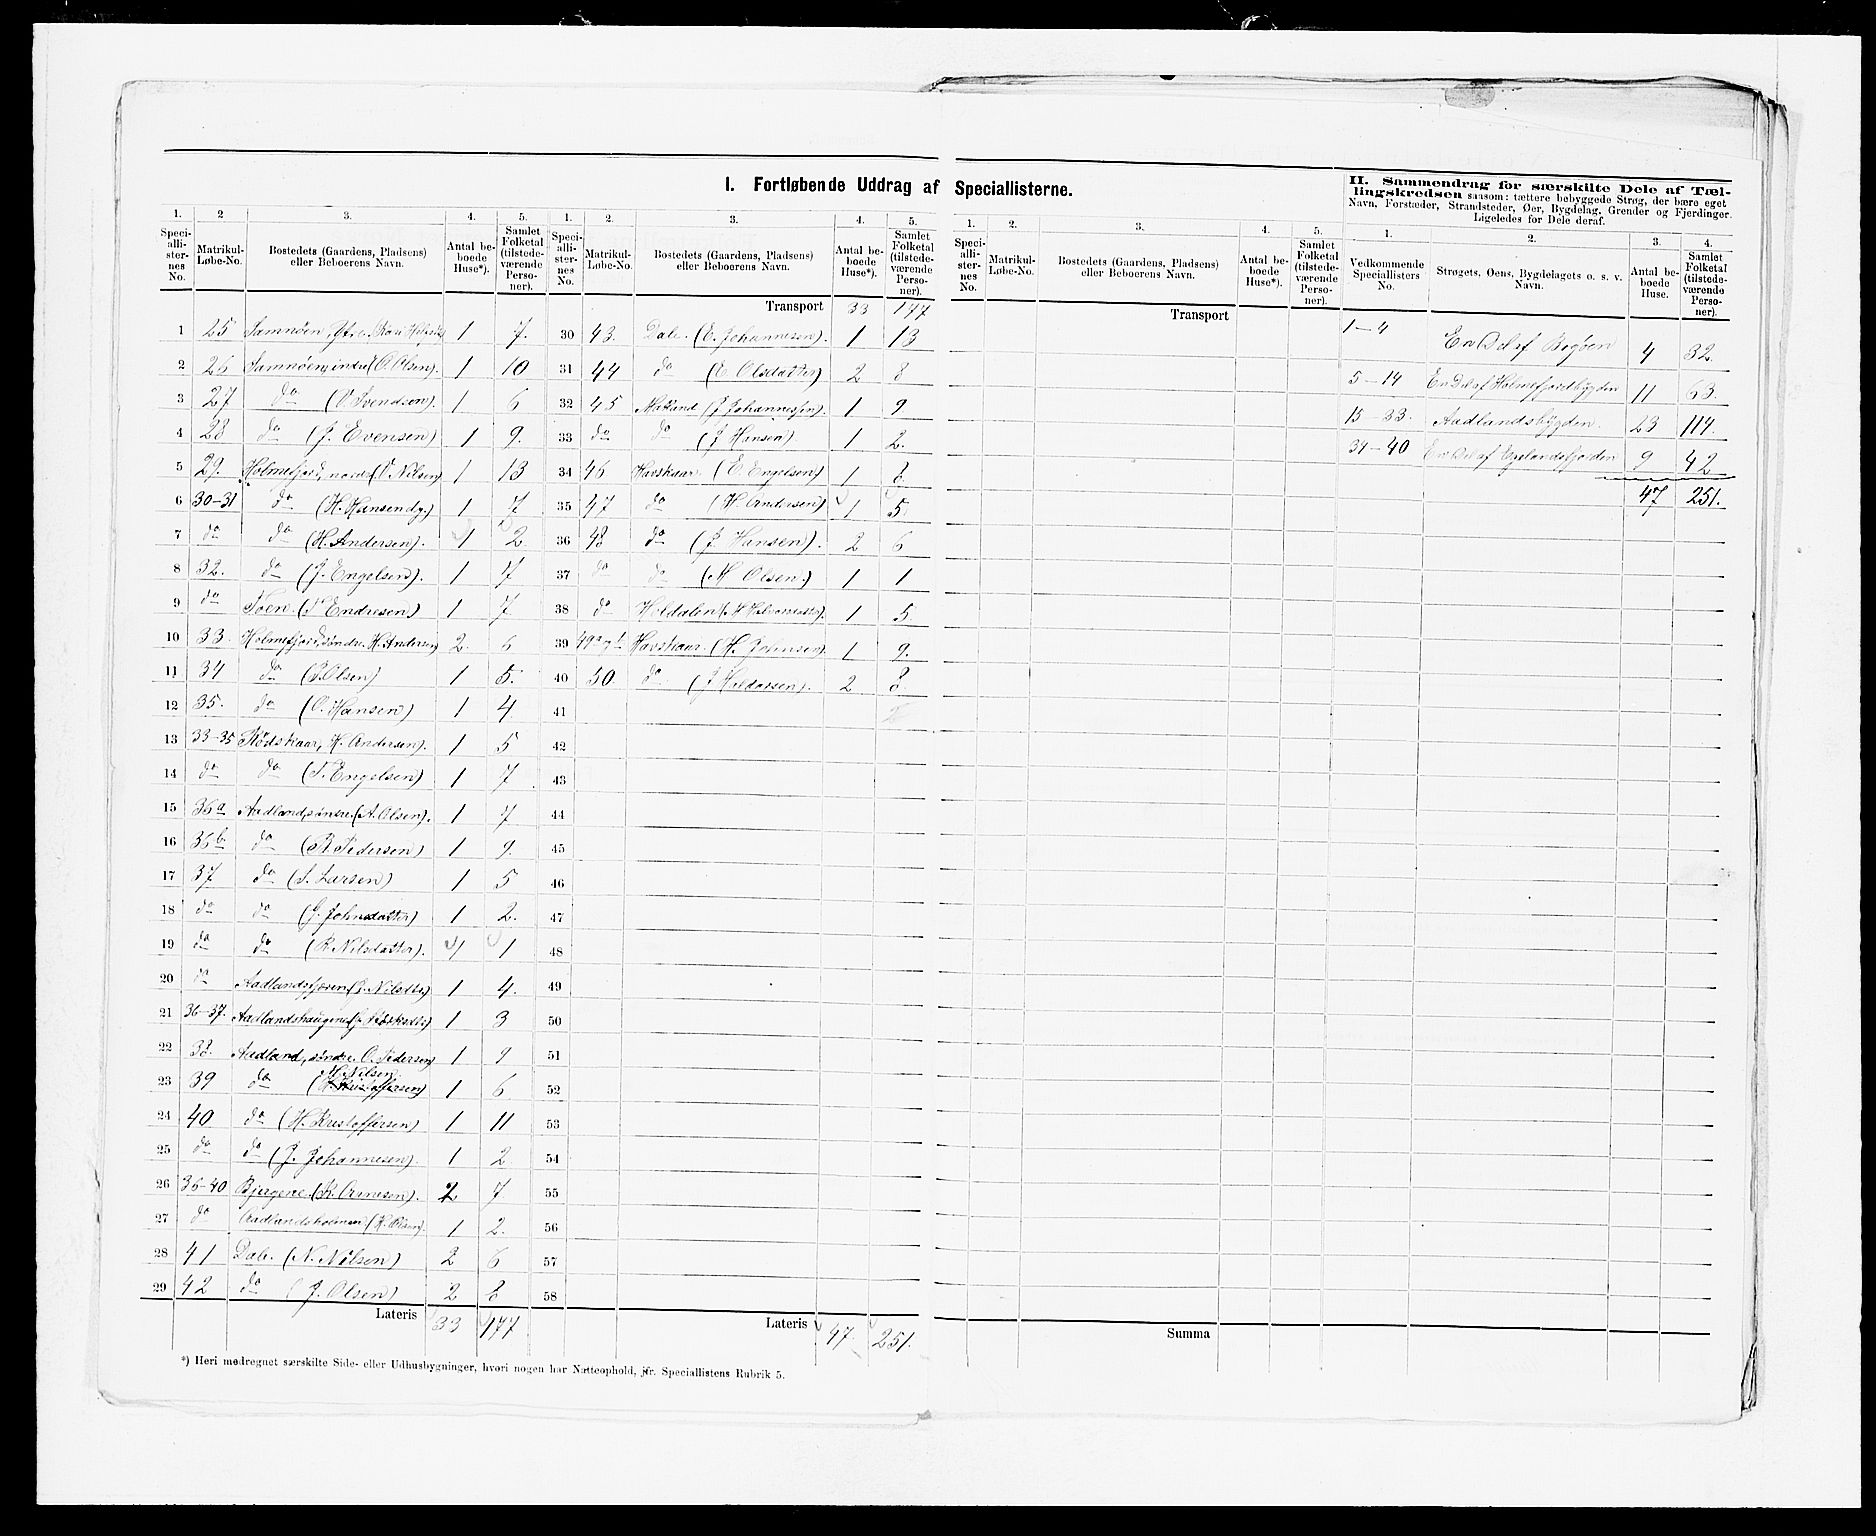 I. Fortløbende Uddrag af Speciallisterne.
1. 2 3. 4. 5.
Speciallisternes No. Matrikul-Løbe-No. Bostedets (Gaardens, Pladsens) eller Beboerens Navn. Antal beboede Huse*). Samlet Folketal (tilstedeværende Personer).
1 25 Samnøen, Ytre 1 7.
2 26 Samnøen, indre (O. Olsen). 1 10
3 27 do (Svendsen). 1 6
4 28 do (J. Evensen) 1 9.
5 29. Holmefjord, nordre (Nilsen) 1 13
6 30-31 do (H. Hansen dy.) 1 7
7 do do (H. Andersen). 1 2
8 32. do (J. Engelsen). 1 7
9 do (Endresen) 1 7
10 33. Holmefjord, søndre. H. Andersen 2. 6
11 34 do (Olsen) 1 5.
12 35. do (O. Hansen) 1 4
13 33-35 Rødskaar, H. Andersen). 1 5
14 do do (Engelsen) 1 7
15 36a Aadland, søndre. (A. Olsen). 1 7
16 36b do (Pedersen) 1 9.
17 37 do (S. Larsen) 1 5
18 do do (J. Johnsdatter) 1 2.
19 do do (R. Nilsdatter). 1 1
20 do 1 4.
21 36-37. 1 3
22 38. Aadland, søndre. O. Pedersen 1 9
23 39 do M. Nilsen 1 6
24 40 do (H. Kristoffersen) 1 11
25 do do (J. Johannesen) 1 2
26 36-40 Bjergene. (K. Arnesen). 2 7
27 do Aadlandsholmen (H. Olsen). 1 2.
28 41 Dale. (N. Nilsen) 2 6
29 42 do (J. Olsen) 2 8
Lateris 33 177
1. 2. 3. 4. 5.
Speciallisternes No. Matrikul-Løbe-No. Bostedets (Gaardens, Pladsens) eller Beboerens Navn. Antal beboede Huse*). Samlet Folketal (tilstedeværende Personer).
Transport 33 177
30 43. Dale. (E. Johannesen). 1 13
31 44 do (E Olsdatter) 2 8
32 45 (J Johannessen). 1 9
33 do do (J Hansen) 1 2.
34 46 Havskaar. (E. Engelsen) 1 8.
35 47 do (H. Andersen) 1 5
36 48 do (J. Hansen). 2 6
37 do do (M Olsen.) 1 1
38 do 1 5.
39 Havskaar. (H. Johnsen). 1 9.
40 50. do (J Haldorsen). 2 8.
41
42
43
44
45
46
47
48
49
50
51
52
53
54
55
56
57
58
Lateris 47. 251.
*) Heri medregnet særskilte Side- eller Udhusbygninger, hvori nogen har Natteophold, jfr. Speciallistens Rubrik 5.
1. 2. 3. 4. 5.
Speciallisternes No. Matrikul-Løbe-No. Bostedets (Gaardens, Pladsens) eller Beboerens Navn. Antal beboede Huse*). Samlet Folketal (tilstedeværende Personer).
Transport
Summa
II. Sammendrag for særskilte Dele af Tællingskredsen saasom: tættere bebyggede Strøg, der bære eget
Navn, Forstæder, Strandsteder, Øer, Bygdelag, Grender og Fjerdinger.
Ligeledes for Dele deraf.
1. 2. 3. 4.
Vedkommende Speciallisters No. Strøgets, Øens, Bygdelagets o. s. v. Navn. Antal beboede Huse. Samlet Folketal (tilstedeværende Personer).
1-4 En Del af 4 32.
5-14 En Del af Holmefjordbygden 11 63.
15-33. Aadlandsbygden. 23 114.
34-40 En Del af 9 42
47 251.